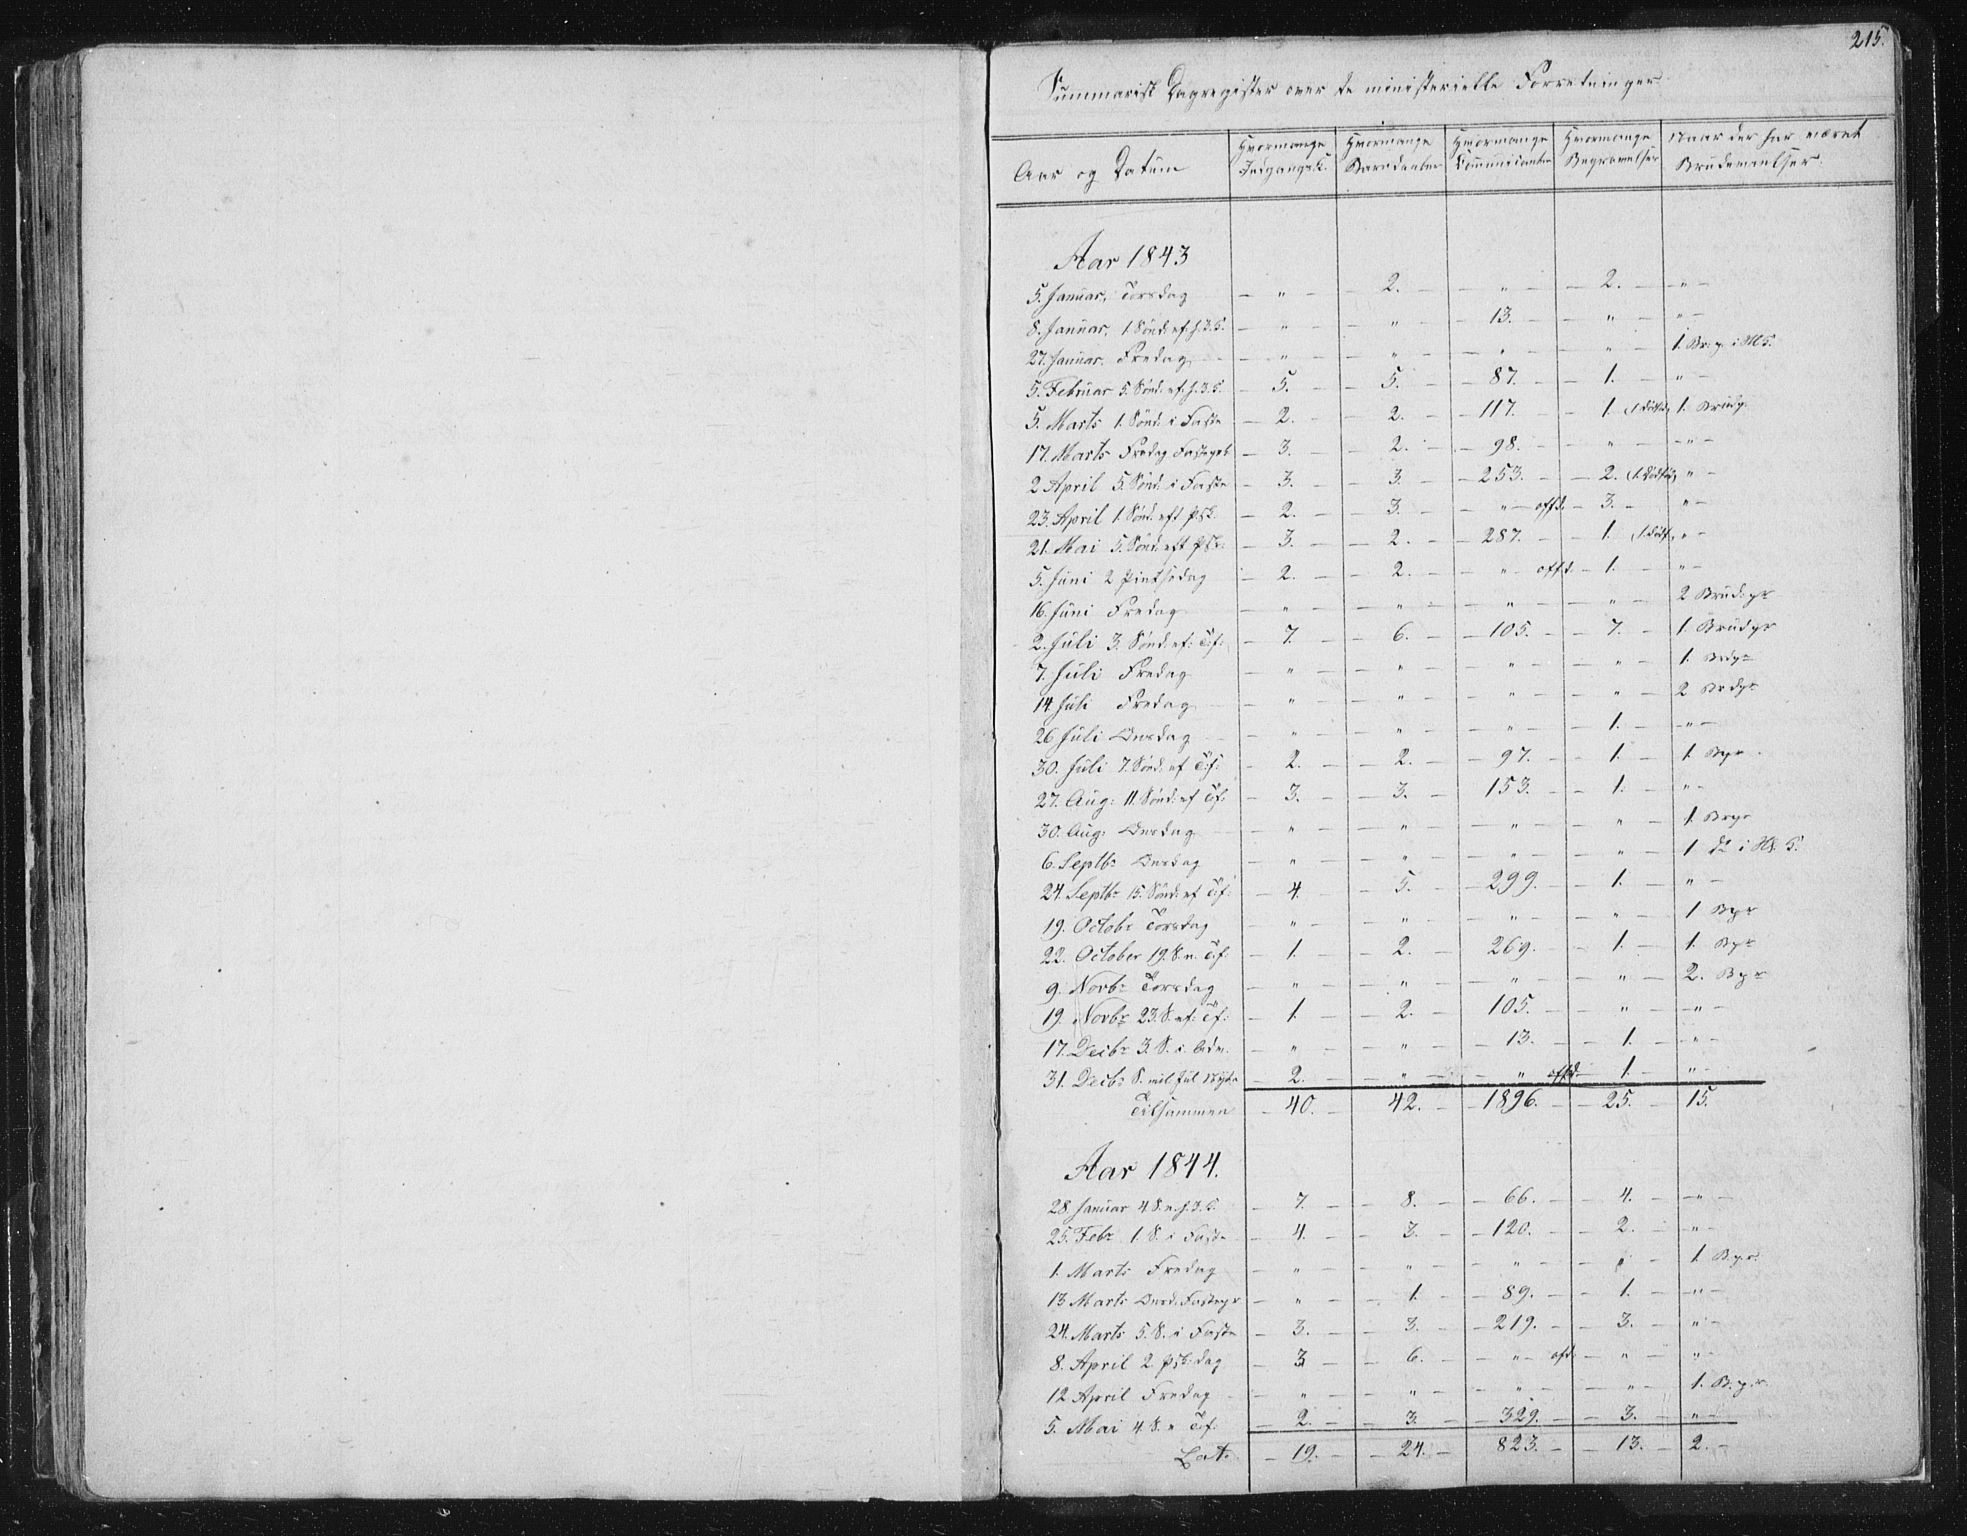 215.
Summarisk Dagregister over de ministerielle Forretninger.
Aar og Datum | Hvormange Indgangsk. | Hvormange Barndaaber | Hvormange Communicanter | Hvormange Begravelser | Naar der har været Brudevielser.
Aar 1843
5. Januar, Torsdag — " — 2. — " — 2. — " —
8. Januar, 1. Sönd. ef. h.3.K. — " — " — 13. — " — " —
27. Januar. Fredag — " — " — " — " — 1. Br. p. i
5. Februar 5. Sönd. ef. h.3.K. — 5. — 5. — 87. — 1. — " —
5. Marts 1. Sönd. i Faste — 2. — 2. — 117. — 1. (1. Dödf.) 1. Brudp.
17. Marts Fredag Fastepr. — 3. — 2. — 98. — " — " —
2 April 5. Sönd. i Faste — 3. — 3. — 253. — 2. (1. Dödf.) " —
23. April 1. Sönd. eft Psk. — 2. — 3. — " — offd. — 3. — " —
21. Mai 5. Sönd. eft Psk. — 3. — 2. — 287. — 1. (1. Dödf.) " —
5. Juni 2 Pintsedag — 2. — 2. — " — offd. — 1. — " —
16. Juni Fredag — " — " — " — " — 2 Brudepr
2. Juli 3. Sönd. ef: Trf: — 7. — 6. — 105. — 7. — 1. Brudpr
7. Juli Fredag — " — " — " — " — 1. Brdpr
14. Juli Fredag — " — " — " — " — 2 Brdpr.
26 Juli Onsdag — " — " — " — 1. — " —
30. Juli 7. Sönd. ef Trf: — 2. — 2. — 97. — 1. — 1. Bpr.
27. Aug: 11. Sönd. ef Trf: — 3. — 3. — 153. — 1. — " —
30. Aug: Onsdag — " — " — " — " — 1. Brpr
6. Septbr Onsdag — " — " — " — " — 1 do i
24. Septbr 15. Sönd. ef Trf: — 4. — 5. — 299. — 1. — " —
19. Octobr Torsdag — " — " — " — " — 1 Bpr
22. October 19. S. e. Trf: — 1. — 2. — 269. — 1. — 1. Bpr
9. Novbr Torsdag — " — " — " — " — 2. Bpr
19. Novbr 23. S. ef: Trf: — 1. — 2. — 105. — " — " —
17. Decbr 3. S. i Adv. — " — " — 13. — 1. — " —
31. Decbr S. mel. Jul Nyta — 2. — " — " offd. — 1. — " —
Tilsammen — 40. — 42. — 1896. — 25. — 15.
Aar 1844.
28. Januar 4 S. e. h.3.K. — 7. — 8. — 66. — 4. — " —
25. Febr. 1. S. i Faste — 4. — 3. — 120. — 2. — " —
1. Marts Fredag — " — " — " — " — 1. B.pr.
13 Marts Onsd. Fastepr — " — 1. — 89. — 1. — " —
24. Marts 5. S. i Faste — 3. — 3. — 219. — 3. — " —
8. April 2. Psk.dag — 3 — 6. — " — ofd. — " — " —
12 April Fredag — " — " — " — " — 1. B.p.r.
5. Mai 4 S. e Trf. — 2. — 3. — 329. — 3. — " —
Lat. — 19. — 24. — 823. — 13. — 2. —